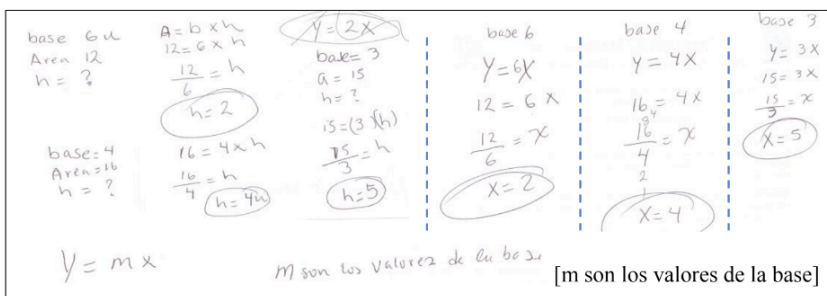 base 6u
Area 12
h = ?
A = b x h
12 = 6 x h
12/6 = h
h = 2
base = 4
Area = 16
h = ?
16 = 4 x h
16/4 = h
h = 4u
y = 2x
base = 3
a = 15
h = ?
15 = (3)(h)
15/3 = h
h = 5
base 6
y = 6x
12 = 6x
12/6 = x
x = 2
base 4
y = 4x
16 = 4x
8 4
16/4 = x
2
1
x = 4
base 3
y = 3x
15 = 3x
15/3 = x
x = 5
y = mx
m son los valores de la base
[m son los valores de la base]